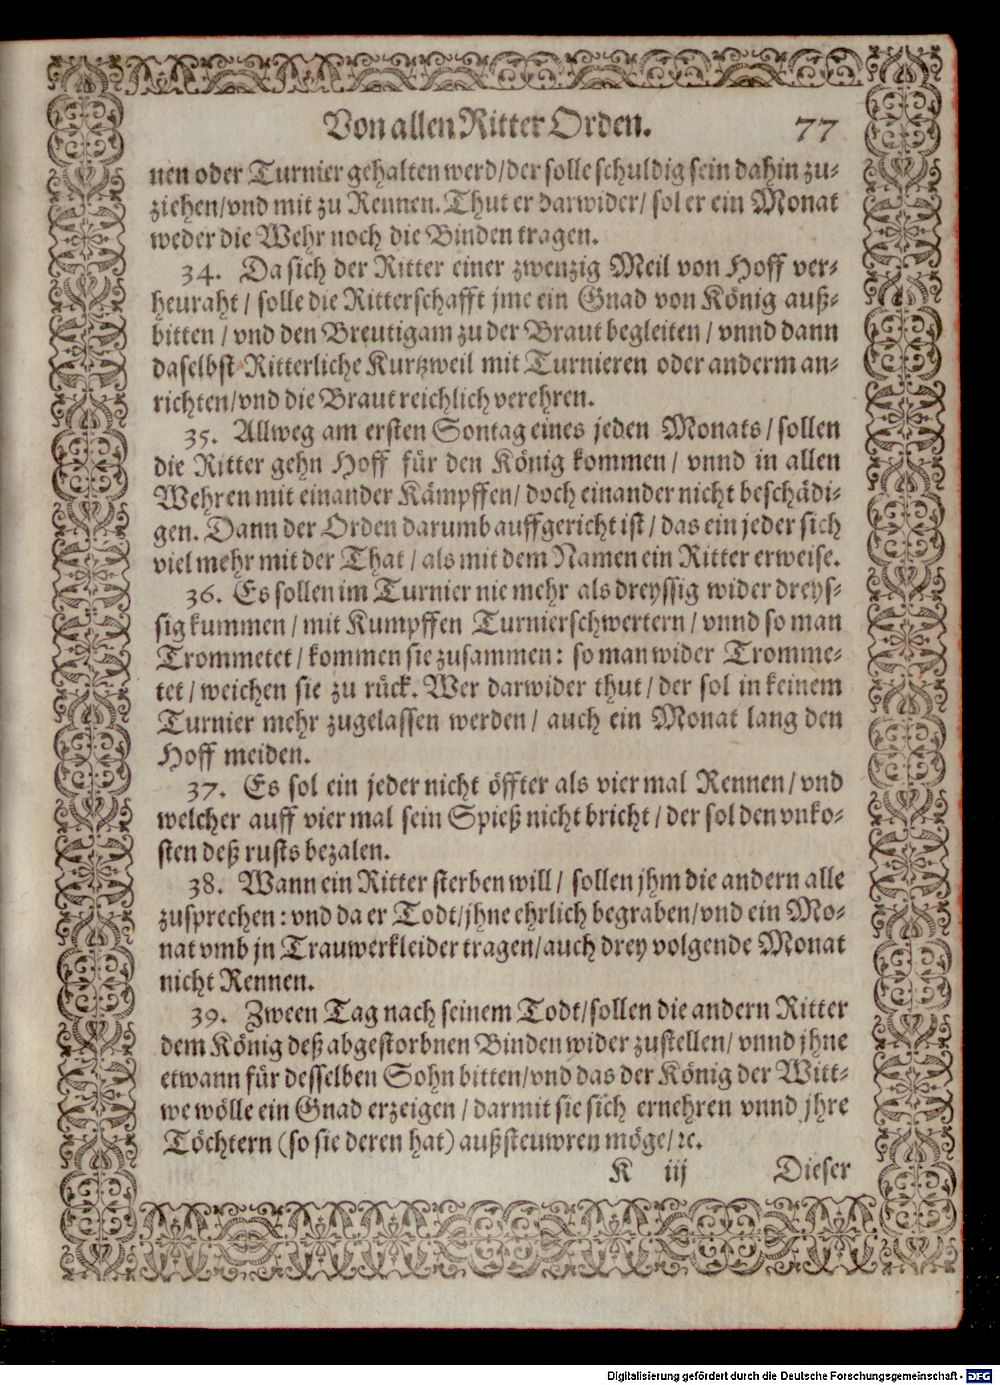 Von allen Ritter Orden. 77
nen oder Turnier gehalten werd/der solle schuldig sein dahin zu-
ziehen/vnd mit zu Rennen. Thut er darwider/ sol er ein Monat
weder die Wehr noch die Binden tragen.
34. Da sich der Ritter einer zwenzig Meil von Hoff ver-
heuraht/ solle die Ritterschafft jme ein Gnad von König auß-
bitten/ vnd den Breutigam zu der Braut begleiten/ vnnd dann
daselbst Ritterliche Kurtzweil mit Turnieren oder anderm an-
richten/vnd die Braut reichlich verehren.
35. Allweg am ersten Sontag eines jeden Monats/ sollen
die Ritter gehn Hoff für den König kommen/ vnnd in allen
Wehren mit einander Kämpffen/ doch einander nicht beschädi-
gen. Dann der Orden darumb auffgericht ist/ das ein jeder sich
viel mehr mit der That/ als mit dem Namen ein Ritter erweise.
36. Es sollen im Turnier nie mehr als dreyssig wider dreys-
sig kummen/ mit Kumpffen Turnierschwertern/ vnnd so man
Trommetet/ kommen sie zusammen: so man wider Tromme-
tet/ weichen sie zu rück. Wer darwider thut/ der sol in keinem
Turnier mehr zugelassen werden/ auch ein Monat lang den
Hoff meiden.
37. Es sol ein jeder nicht öffter als vier mal Rennen/ vnd
welcher auff vier mal sein Spieß nicht bricht/ der sol den vnko-
sten deß rusts bezalen.
38. Wann ein Ritter sterben will/ sollen jhm die andern alle
zusprechen: vnd da er Todt/jhne ehrlich begraben/vnd ein Mo-
nat vmb jn Trauwerkleider tragen/auch drey volgende Monat
nicht Rennen.
39. Zween Tag nach seinem Todt/sollen die andern Ritter
dem König deß abgestorbnen Binden wider zustellen/ vnnd jhne
etwann für desselben Sohn bitten/vnd das der König der Witt-
we wölle ein Gnad erzeigen/ darmit sie sich ernehren vnnd jhre
Töchtern (so sie deren hat) außsteuwren möge/ꝛc.
K iij Dieser
Digitalisierung gefördert durch die Deutsche Forschungsgemeinschaft - DFG